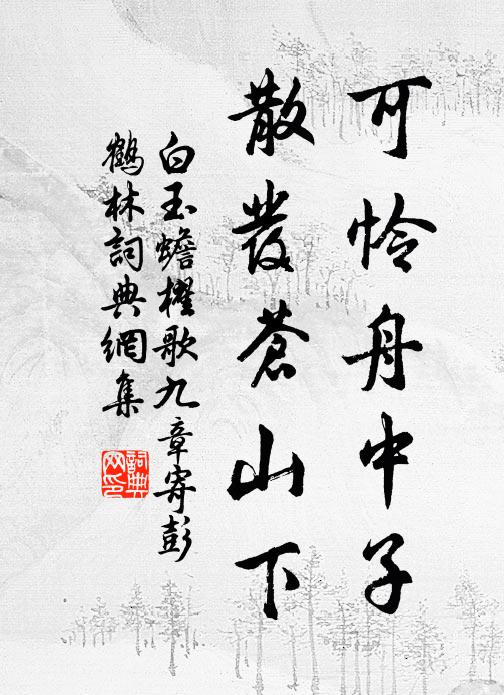 可怜舟中子
散發蒼山下
白玉蟾櫂歌九章寄彭
鶴林詞典網集
詞典網印